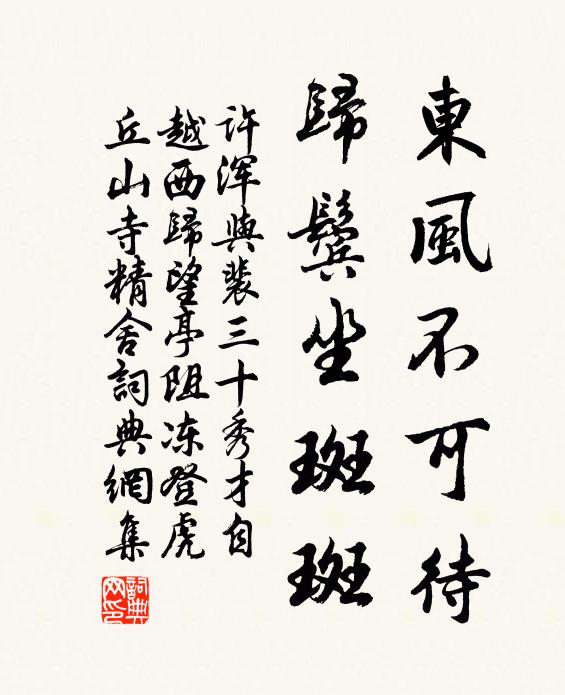 東風不可待
歸鬢坐斑斑
許渾與裴三十秀才自
越西歸望亭阻冻登虎
丘山寺精舍詞典網集
詞典网印